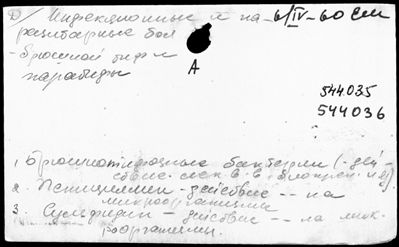 D/ Инфекционные и па- 6/IV-60 Ем
разитарные бол
- брюшной тиф и
паратифы
А
544035
544036
1, Брюшнотифозные бактерии (- дей-
ствие
2. Пенициллин - действие -- на
микроорганизмы
3. Сульфидин - действие -- на мик-
роорганизмы.